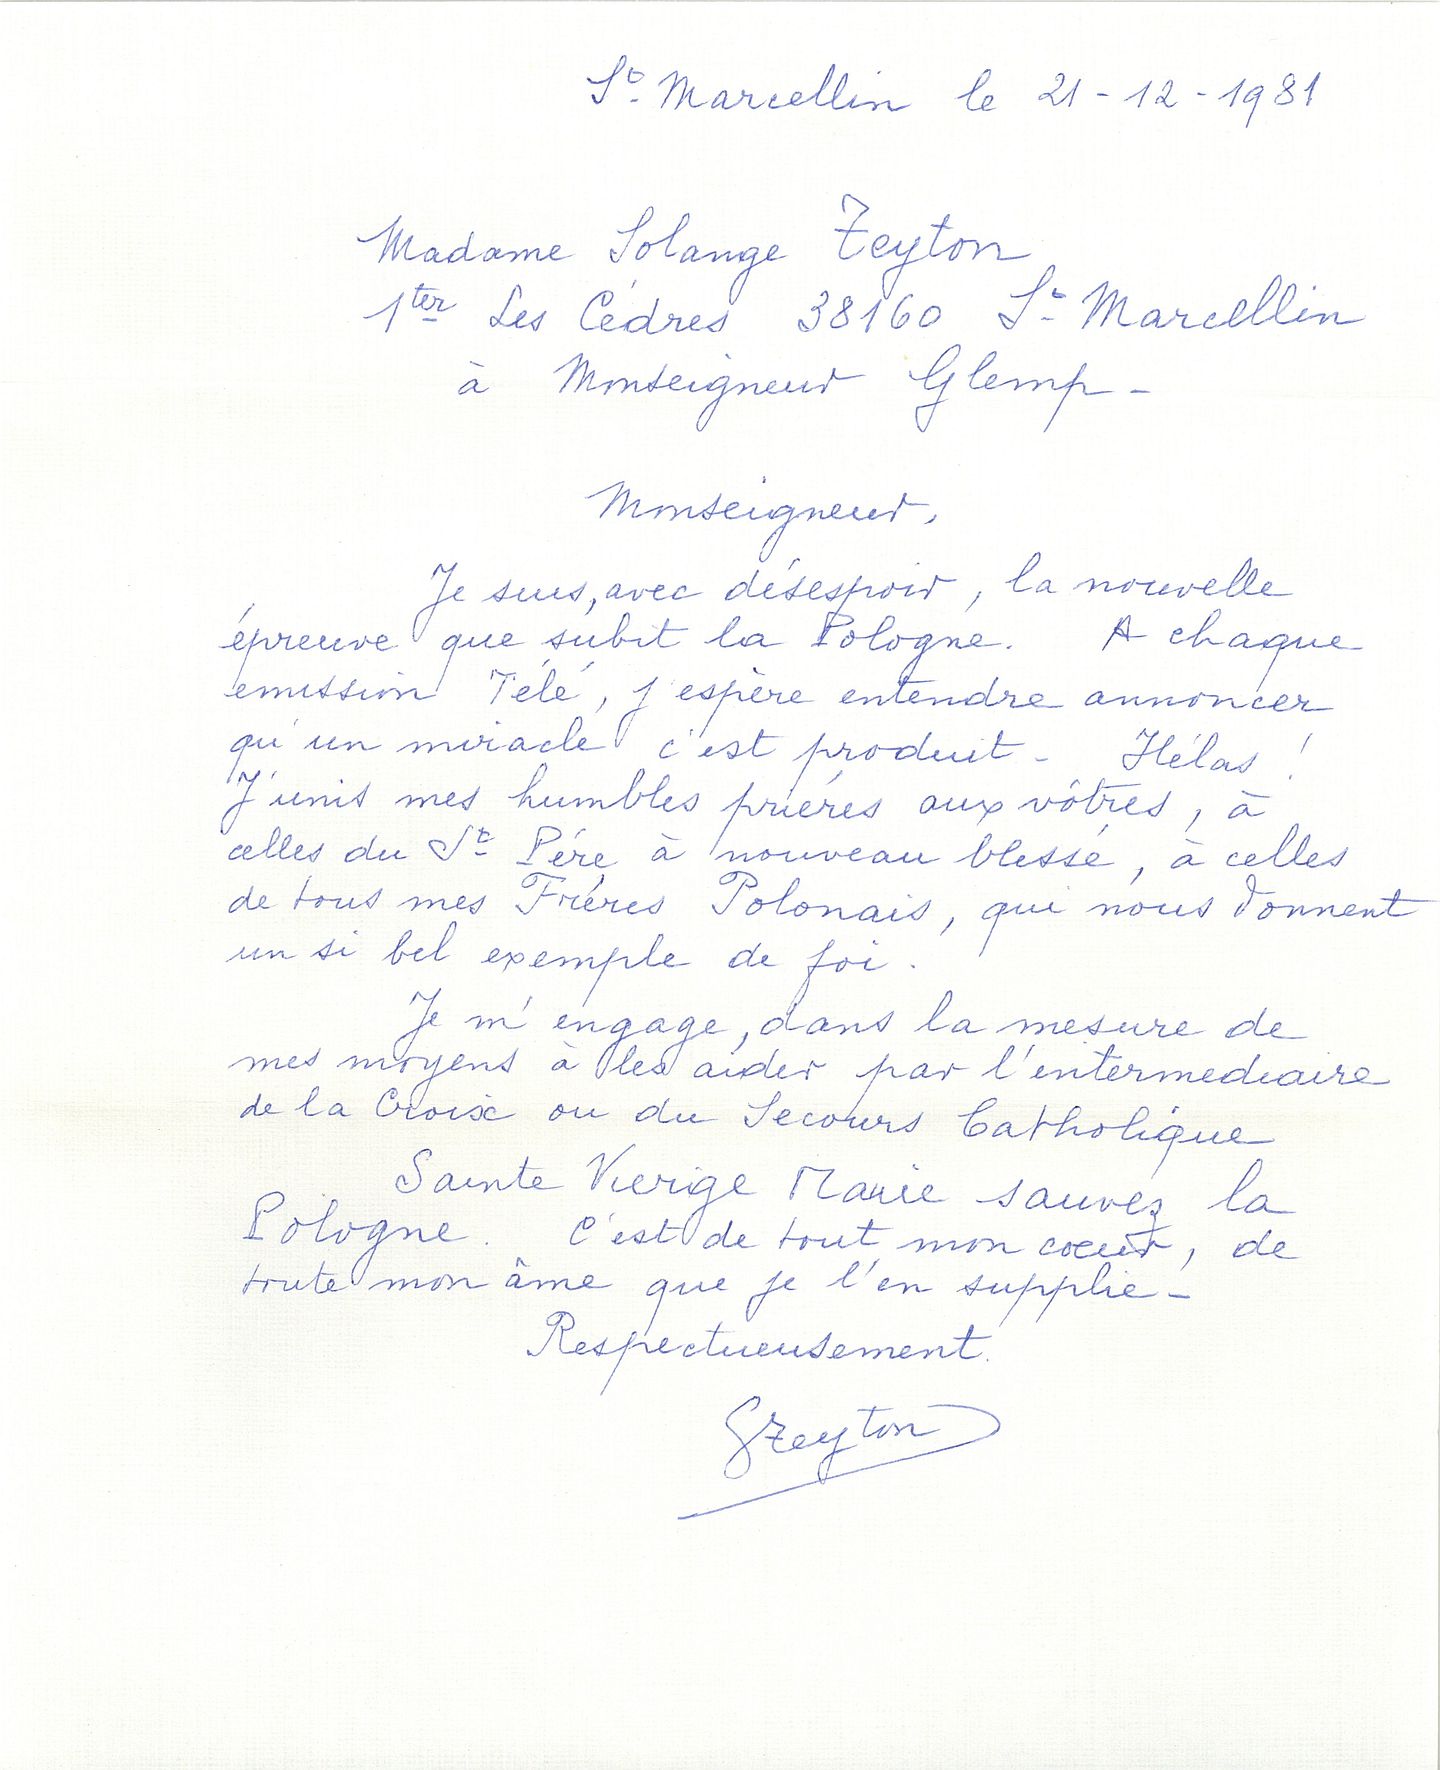 St Marcellin le 21-12-1981
Madame Solange Zeyton
1ter Les Cèdres 38160 St Marcellin
à Monseigneur Glemp -
Monseigneur,
Je suis, avec désespoir, la nouvelle
épreuve que subit la Pologne. A chaque
émission Télé, j'espère entendre annoncer
qu'un miracle c'est produit - Hélas !
J'unis mes humbles prières aux vôtres, à
celles du St Père à nouveau blessé, à celles
de tous mes Frères Polonais, qui nous donnent
un si bel exemple de foi.
Je m'engage, dans la mesure de
mes moyens à les aider par l'intermediaire
de la Croix ou du Secours Catholique
Sainte Vierige Marie sauvez la
Pologne. C'est de tout mon coeur, de
toute mon âme que je l'en supplie -
Respectueusement.
SZeyton